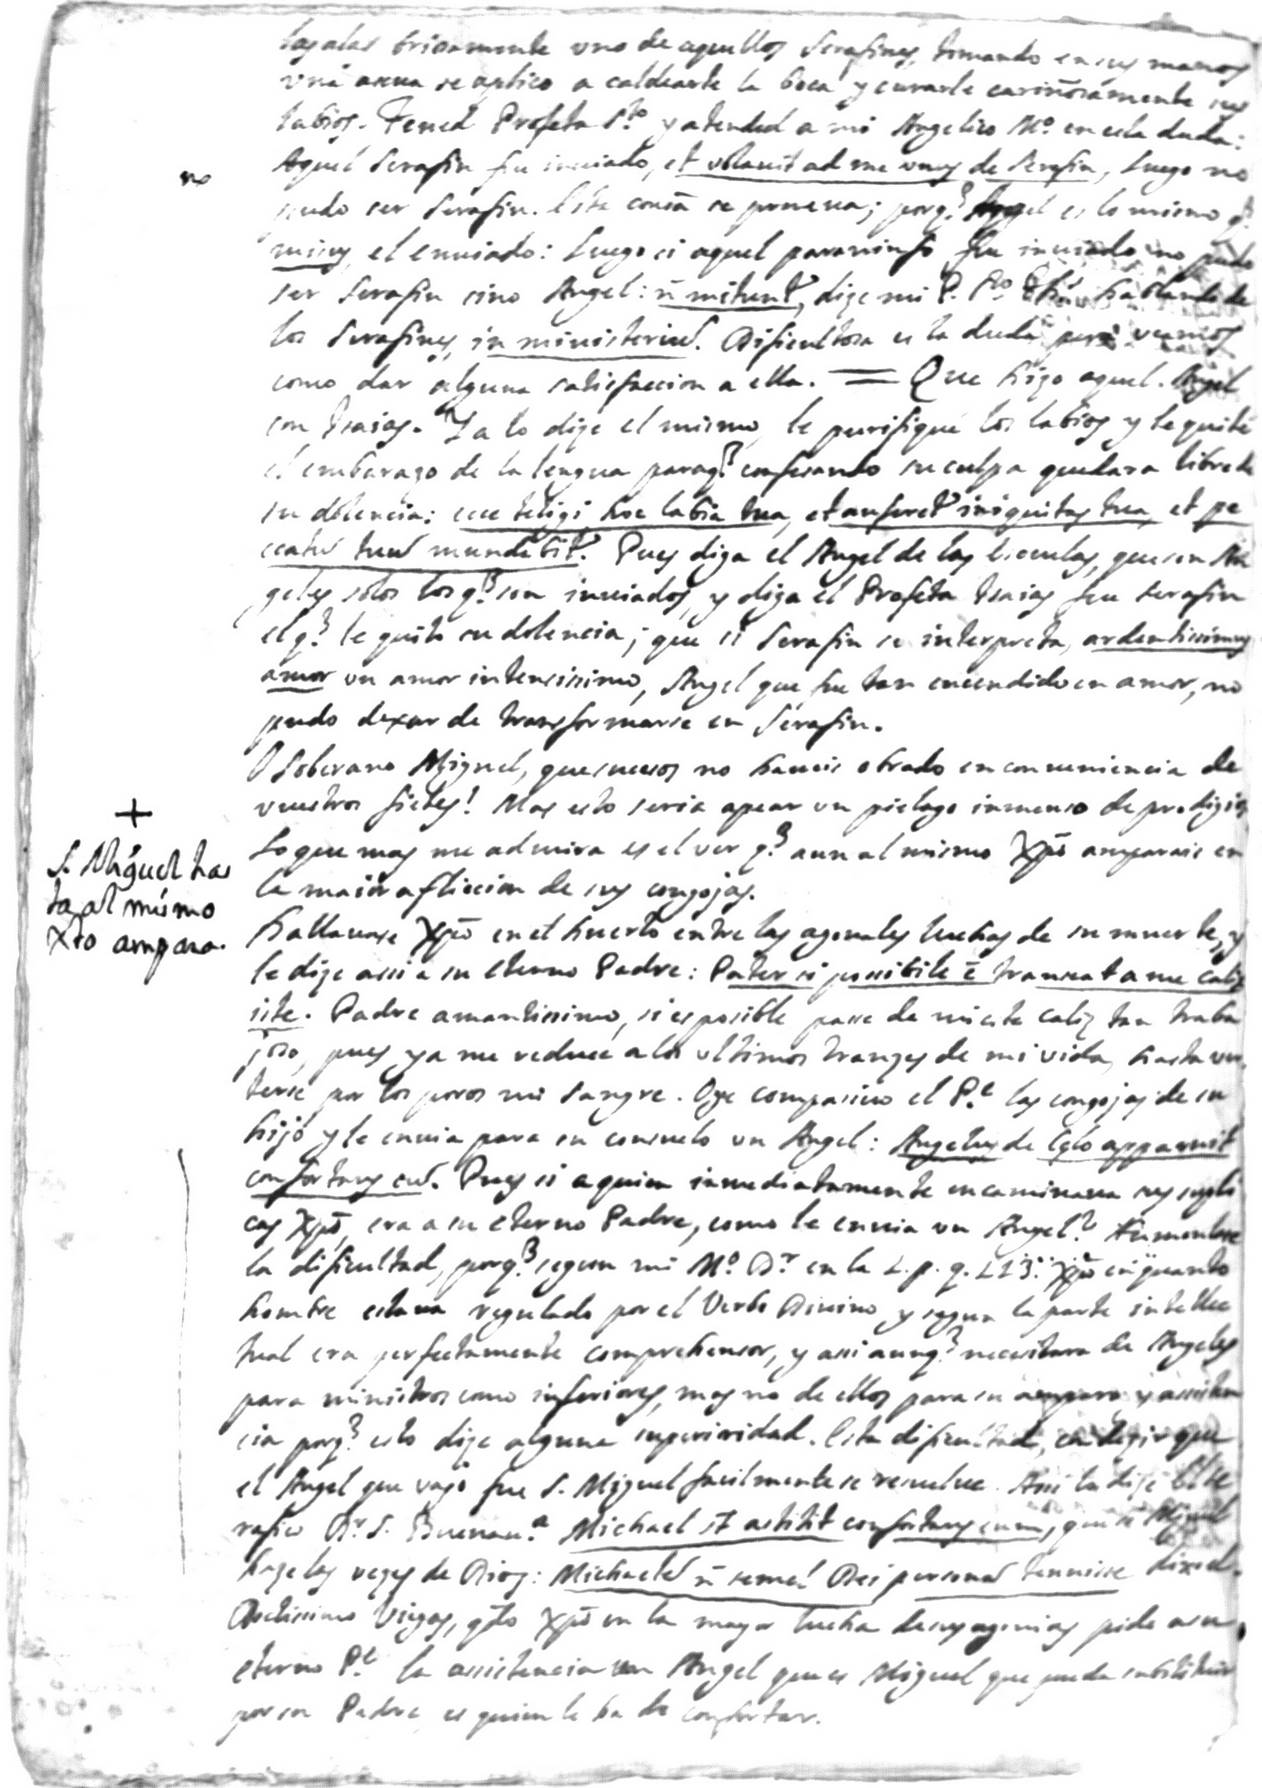 las alas briosamente uno de aquellos Serafines, tomando en sus manos
una ascua se aplico a caldearle la boca y curarle cariñosamente sus
labios. Tened Profeta S.to y atended a mi Angelico M.o en esta duda:
Aquel Serafin fue inviado, et volavit ad me unus de Serafin, luego no
pudo ser Serafin. Esta conseq.a se prueva; porq.e Angel es lo mismo q.e
missus, el enviado: Luego si aquel paraninfo fue inviado no pudo
ser Serafin sino Angel: ñ mitunt.r, dize mi P. S.to Tho. hablando de
los Serafines, in ministeriū. Dificultosa es la duda pero veamos
como dar alguna satisfaccion a ella. = Que hizo aquel Angel
con Isaias. Ya lo dize el mismo, le purifiqué los labios y le quité
el embarazo de la lengua paraq.e confesando su culpa quedara libre de
su dolencia: ecce tetigi hoc labia tua, et auferet.r iniquitas tua, et pe
catū tuū mundabit.r. Pues diga el Angel de las Escuelas, que son An
geles solos los q.e son inviados, y diga el Profeta Isaias fue Serafin
el q.e le quito su dolencia; que si Serafin se interpreta, ardentissimus
amor un amor intensissimo, Angel que fue tan encendido en amor, no
pudo dexar de transformarse en Serafin.
O Soberano Miguel, que sucesos no haveis obrado en conveniencia de
vuestros fieles! Mas esto seria apear un pielago inmenso de prodigios
Lo que mas me admira es el ver q.e aun al mismo Xp̄o amparais en
la maior afliccion de sus congojas.
+
S. Miguel has
ta al mismo
Xto ampara.
Hallavase Xp̄o en el huerto entre las agonales luchas de su muerte, y
le dize assi a su eterno Padre: Pater si possibile ē transeat a me calix
iste. Padre amantissimo, si es posible passe de mi este caliz tan traba
joso, pues ya me reduce a los ultimos tranzes de mi vida, hasta ver
terse por los poros mi sangre. Oye compasivo el P.e las congojas de su
hijo y le envia para su consuelo un Angel: Angelus de Celo apparuit
confortans eū. Pues si a quien inmediatamente encaminava sus supli
cas Xp̄o, era a su eterno Padre, como le envia un Angel? Aumentase
la dificultad, porq.e segun mi M.o D.r en la 1. p. q. 113. Xp̄o en quanto
hombre estava regulado por el Verbo Divino, y segun la parte intellec
tual era perfectamente comprehensor, y assi aunq.e necesitara de Angeles
para ministros como inferiores, mas no de ellos para su amparo y assisten
cia porq.e esto dize alguna superioridad. Esta dificultad, con dezir que
el Angel que vajó fue S. Miguel facilmente se resuelve. Assi lo dize el Se
rafico D.r S. Buenav.a Michael ē astitit confortans eum, que si Miguel
haze las vezes de Dios: Michaelē ñ semel Dei personā tenuisse dixo el
Doctissimo Viegas, q.do Xp̄o en la mayor lucha de sus agonias pide a su
eterno P.e la assistencia un Angel que es Miguel que pueda substituir
por su Padre, es quien le ha de confortar.